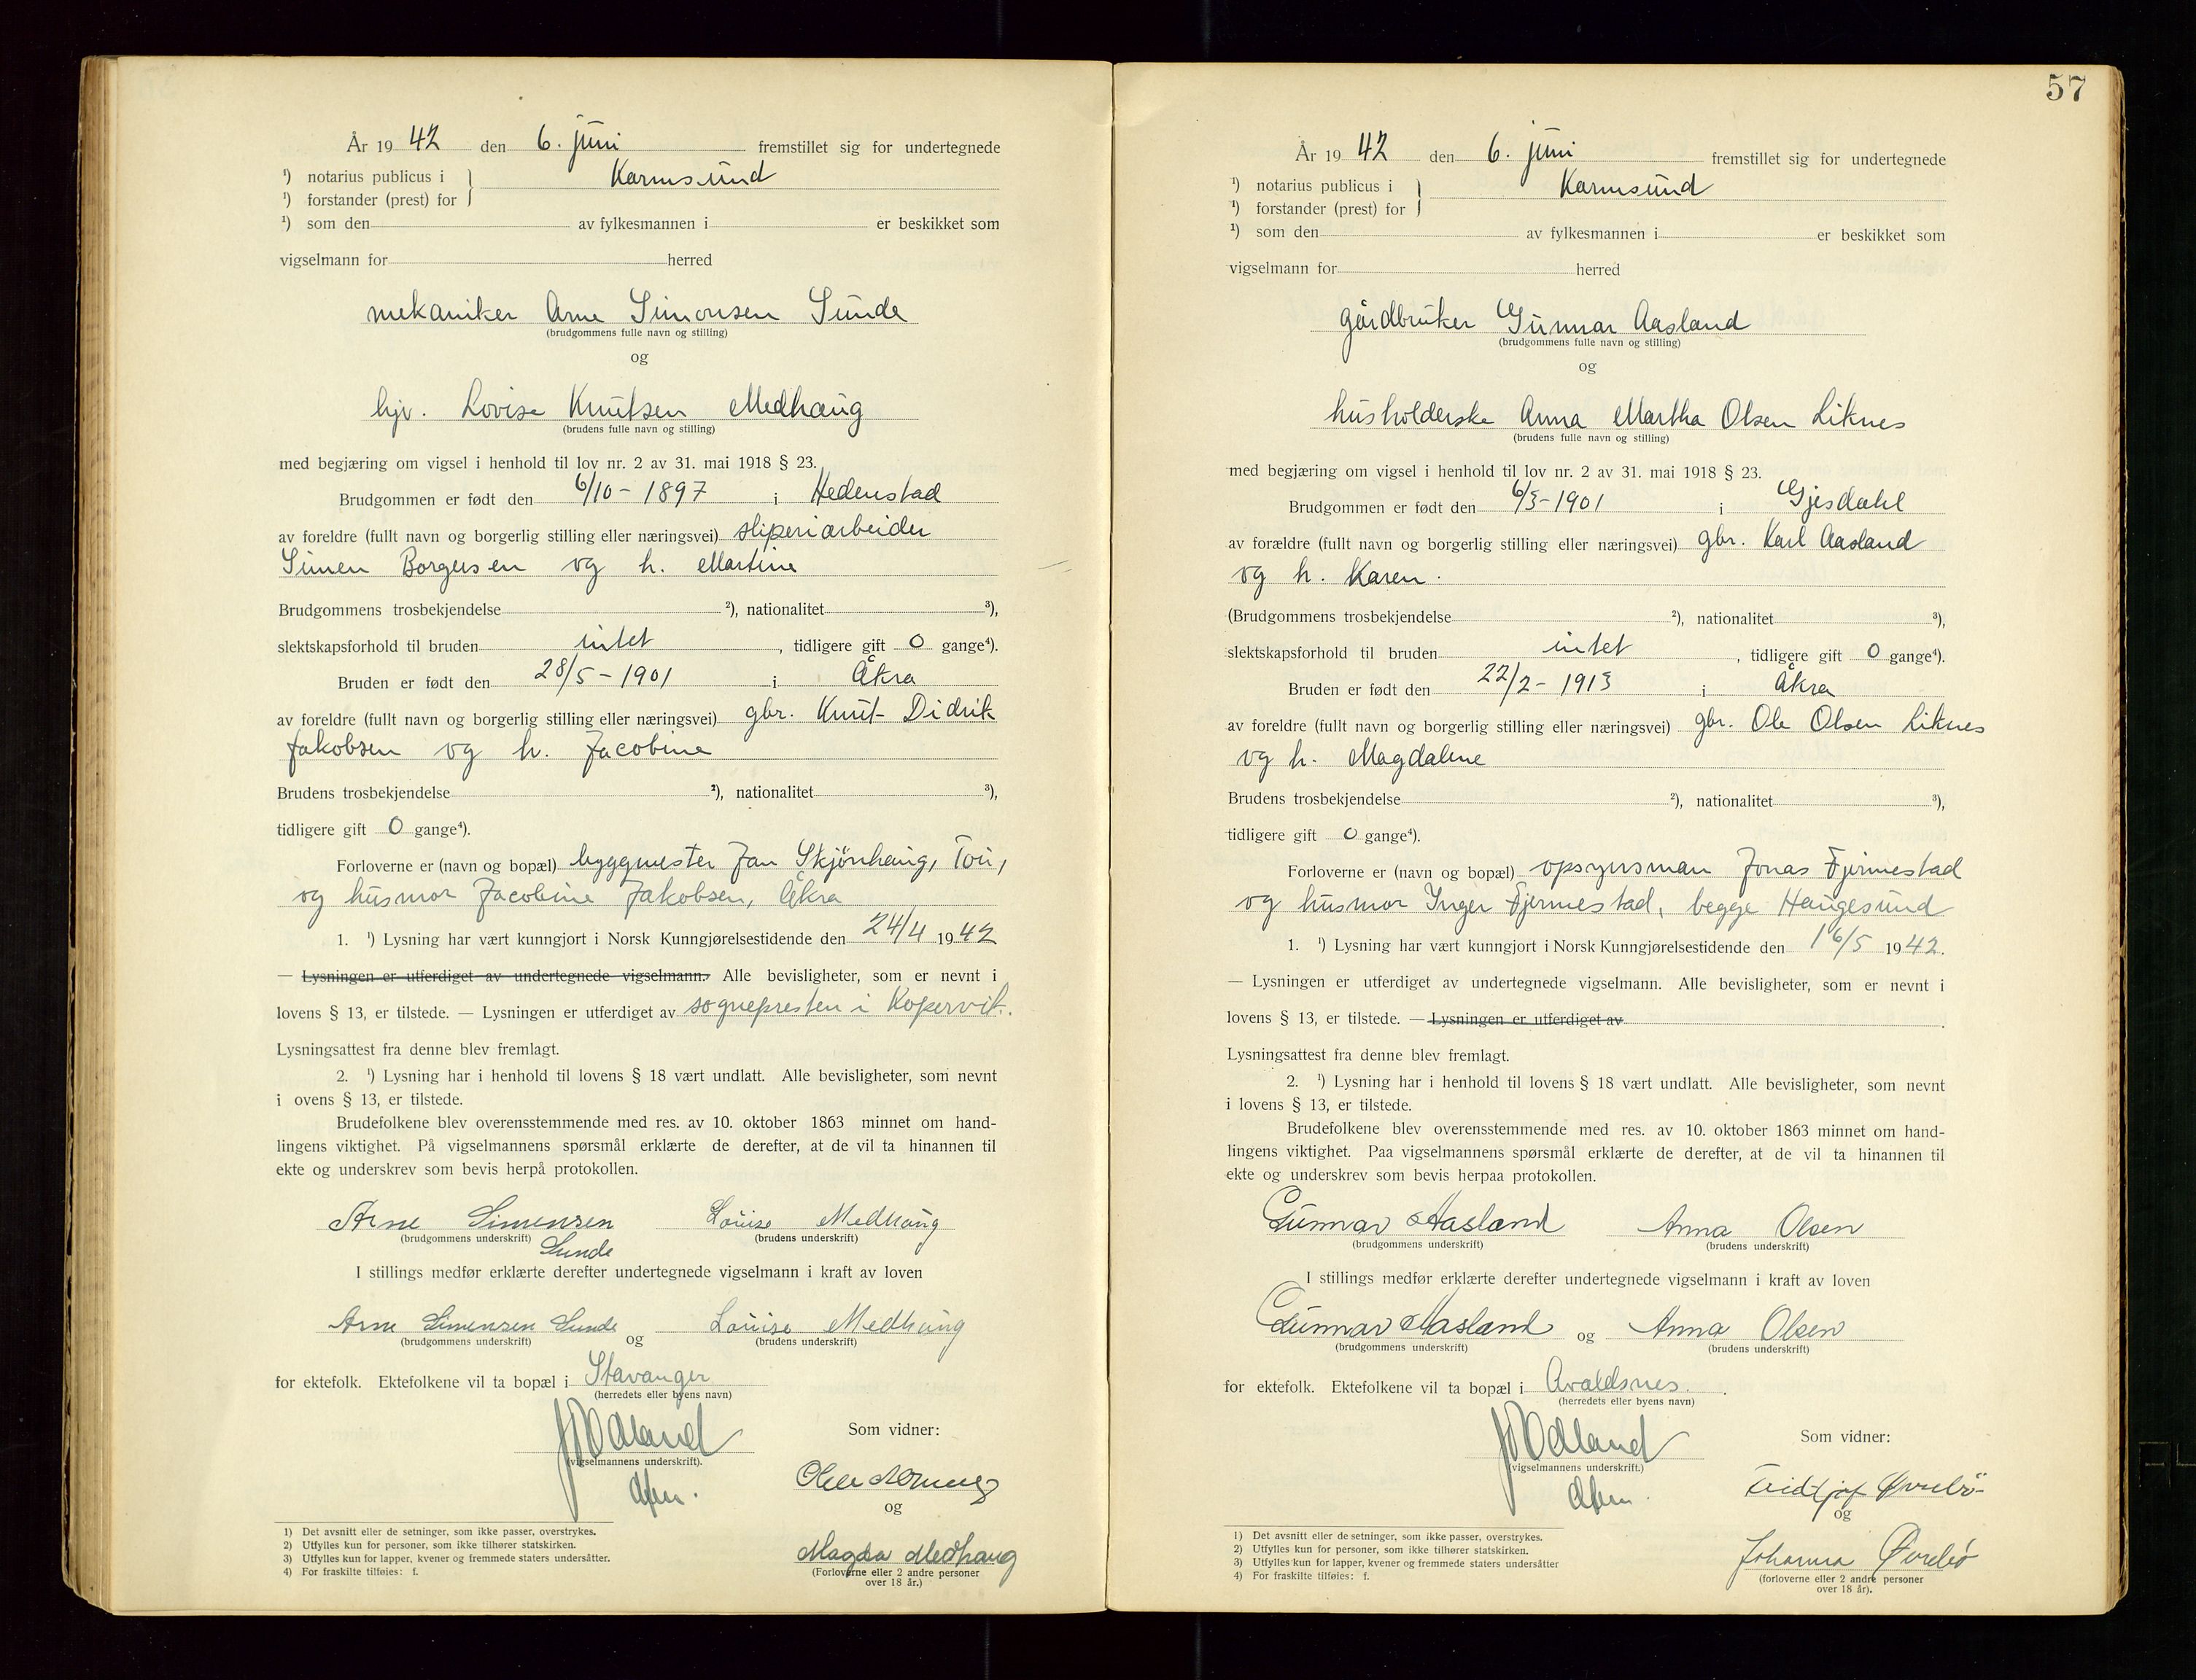 År 1942 den 6. juni fremstillet sig for undertegnede
¹) notarius publicus i } Karmsund
¹) forstander (prest) for
¹) som den av fylkesmannen i er beskikket som
vigselmann for herred
mekaniker Arne Simonsen Sunde
(brudgommens fulle navn og stilling)
og
hjv. Lovise Knutsen Medhaug
(brudens fulle navn og stilling)
med begjæring om vigsel i henhold til lov nr. 2 av 31. mai 1918 § 23.
Brudgommen er født den 6/10 - 1897 i Hedenstad
av foreldre (fullt navn og borgerlig stilling eller næringsvei) sliperiarbeider
Simen Borgersen og h. Martine
Brudgommens trosbekjendelse ²), nationalitet ³),
slektskapsforhold til bruden intet, tidligere gift 0 gange⁴).
Bruden er født den 28/5 - 1901 i Åkra
av foreldre (fullt navn og borgerlig stilling eller næringsvei) gbr. Knut Didrik
Jakobsen og h. Jacobine
Brudens trosbekjendelse ²), nationalitet ³),
tidligere gift 0 gange⁴).
Forloverne er (navn og bopæl) byggmester Jan Skjönhaug, Tou,
og husmor Jacobine Jakobsen, Åkra
1. ¹) Lysning har vært kunngjort i Norsk Kunngjørelsestidende den 24/4 1942
— Lysningen er utferdiget av undertegnede vigselmann. Alle bevisligheter, som er nevnt i
lovens § 13, er tilstede. — Lysningen er utferdiget av sognepresten i Kopervik.
Lysningsattest fra denne blev fremlagt.
2. ¹) Lysning har i henhold til lovens § 18 vært undlatt. Alle bevisligheter, som nevnt
i ovens § 13, er tilstede.
Brudefolkene blev overensstemmende med res. av 10. oktober 1863 minnet om hand-
lingens viktighet. På vigselmannens spørsmål erklærte de derefter, at de vil ta hinannen til
ekte og underskrev som bevis herpå protokollen.
Arne Simensen Louise Medhaug
(brudgommens underskrift) Sunde (brudens underskrift)
I stillings medfør erklærte derefter undertegnede vigselmann i kraft av loven
Arne Simensen Sunde og Louise Medhaug
(brudgommens underskrift) (brudens underskrift)
for ektefolk. Ektefolkene vil ta bopæl i Stavanger
(herredets eller byens navn)
Ødland
(vigselmannens underskrift).
Som vidner:
og
Magda Medhaug
(Forloverne eller 2 andre personer
over 18 år.)
1) Det avsnitt eller de setninger, som ikke passer, overstrykes.
2) Utfylles kun for personer, som ikke tilhører statskirken.
3) Utfylles kun for lapper, kvener og fremmede staters undersåtter.
4) For fraskilte tilføies: f.
57
År 1942 den 6. juni fremstillet sig for undertegnede
¹) notarius publicus i } Karmsund
¹) forstander (prest) for
¹) som den av fylkesmannen i er beskikket som
vigselmann for herred
gårdbruker Gunnar Aasland
(brudgommens fulle navn og stilling)
og
husholderske Anna Martha Olsen Liknes
(brudens fulle navn og stilling)
med begjæring om vigsel i henhold til lov nr. 2 av 31. mai 1918 § 23.
Brudgommen er født den 6/3-1901 i Gjesdahl
av forældre (fullt navn og borgerlig stilling eller næringsvei) gbr. Karl Aasland
og h. Karen.
(Brudgommens trosbekjendelse ²), nationalitet ³),
slektskapsforhold til bruden intet, tidligere gift 0 gange⁴).
Bruden er født den 22/2 - 1913 i Åkra
av foreldre (fullt navn og borgerlig stilling eller næringsvei) gbr. Ole Olsen Liknes
og h. Magdalene
Brudens trosbekjendelse ²), nationalitet ³),
tidligere gift 0 gange⁴).
Forloverne er (navn og bopæl) opsynsman Jonas Fjermestad
og husmor Inger Fjermestad, begge Haugesund
1. ¹) Lysning har vært kunngjort i Norsk Kunngjørelsestidende den 16/5 1942.
— Lysningen er utferdiget av undertegnede vigselmann. Alle bevisligheter, som er nevnt i
lovens § 13, er tilstede. — Lysningen er utferdiget av
Lysningsattest fra denne blev fremlagt.
2. ¹) Lysning har i henhold til lovens § 18 vært undlatt. Alle bevisligheter, som nevnt
i lovens § 13, er tilstede.
Brudefolkene blev overensstemmende med res. av 10. oktober 1863 minnet om hand-
lingens viktighet. Paa vigselmannens spørsmål erklærte de derefter, at de vil ta hinannen til
ekte og underskrev som bevis herpaa protokollen.
Gunnar Aasland Anna Olsen
(brudgommens underskrift) (brudens underskrift)
I stillings medfør erklærte derefter undertegnede vigselmann i kraft av loven
Gunnar Aasland og Anna Olsen
(brudgommens underskrift) (brudens underskrift)
for ektefolk. Ektefolkene vil ta bopæl i Avaldsnes.
(herredets eller byens navn)
Ødland
(vigselmannens underskrift.)
Som vidner:
Fridtjof Øvrebö
og
Johanna Øvrebø
(forloverne eller 2 andre personer
over 18 år).
1) Det avsnitt eller de setninger, som ikke passer, overstrykes.
2) Utfylles kun for personer, som ikke tilhører statskirken.
3) Utfylles kun for lapper, kvener og fremmede staters undersåtter
4) For fraskilte tilføies: f.